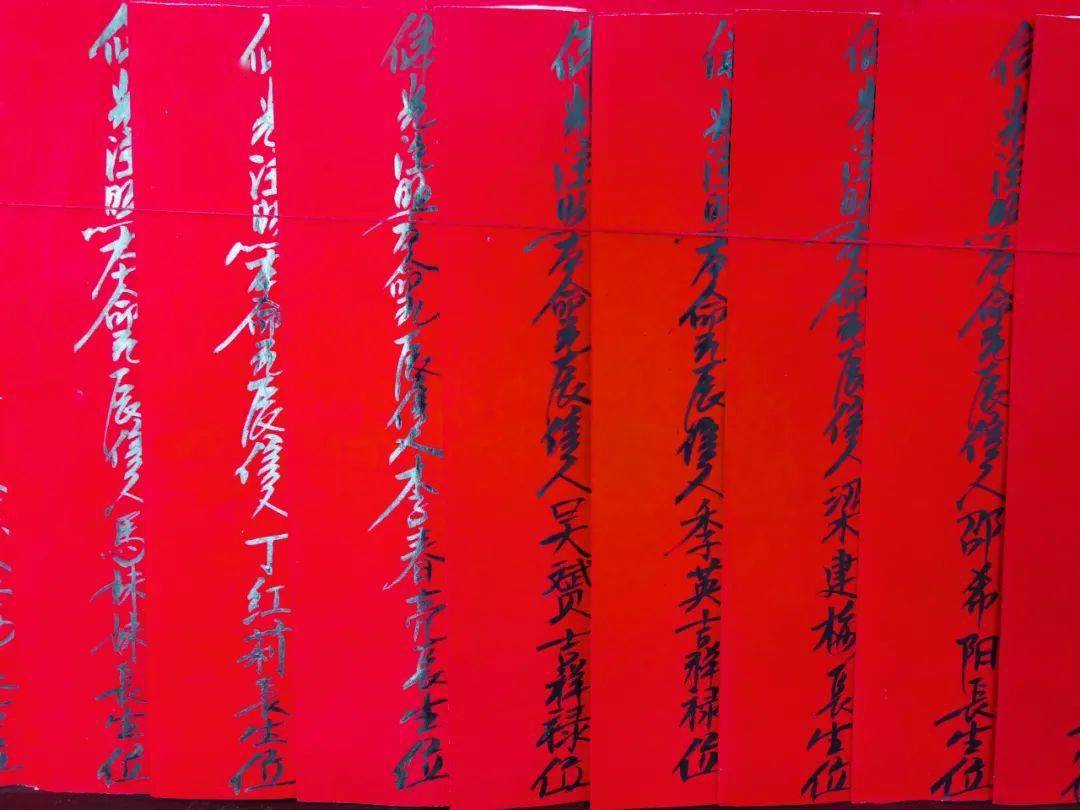 佛光注照本命元辰信人邵希阳長生位
佛光注照本命元辰信人梁建長生位
佛光注照本命元辰信人季英吉祥禄位
佛光注照本命元辰信人吴赟吉祥禄位
佛光注照本命元辰信人李春亮長生位
佛光注照本命元辰信人丁紅莉長生位
佛光注照本命元辰信人馬妹妹長生位